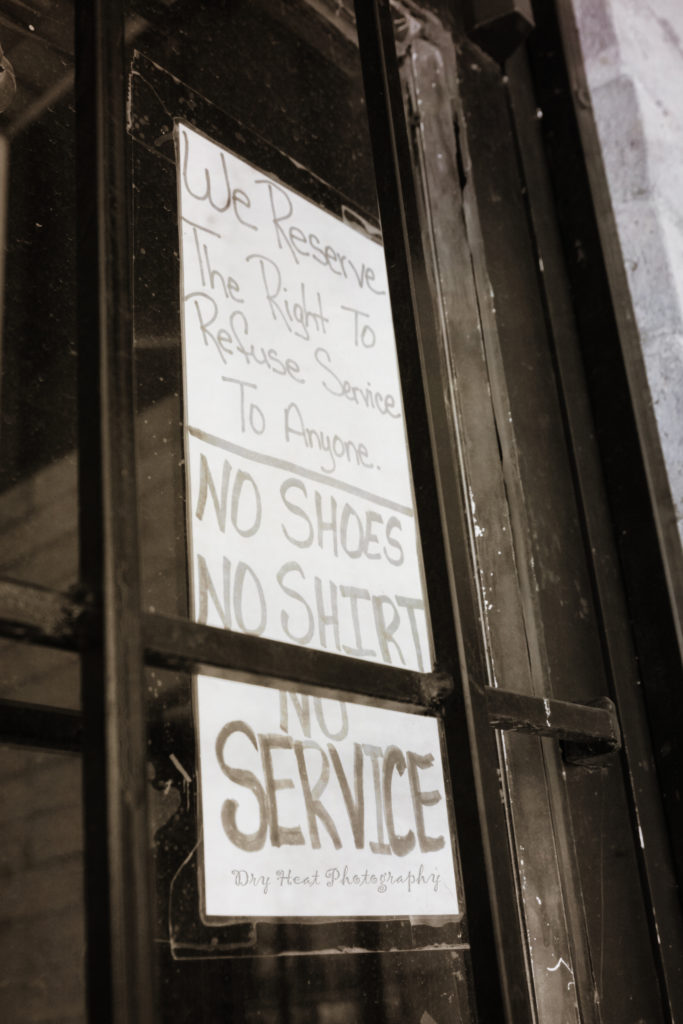 We Reserve
The Right To
Refuse Service
To Anyone.
NO SHOES
NO SHIRT
NO
SERVICE
Dry Heat Photography